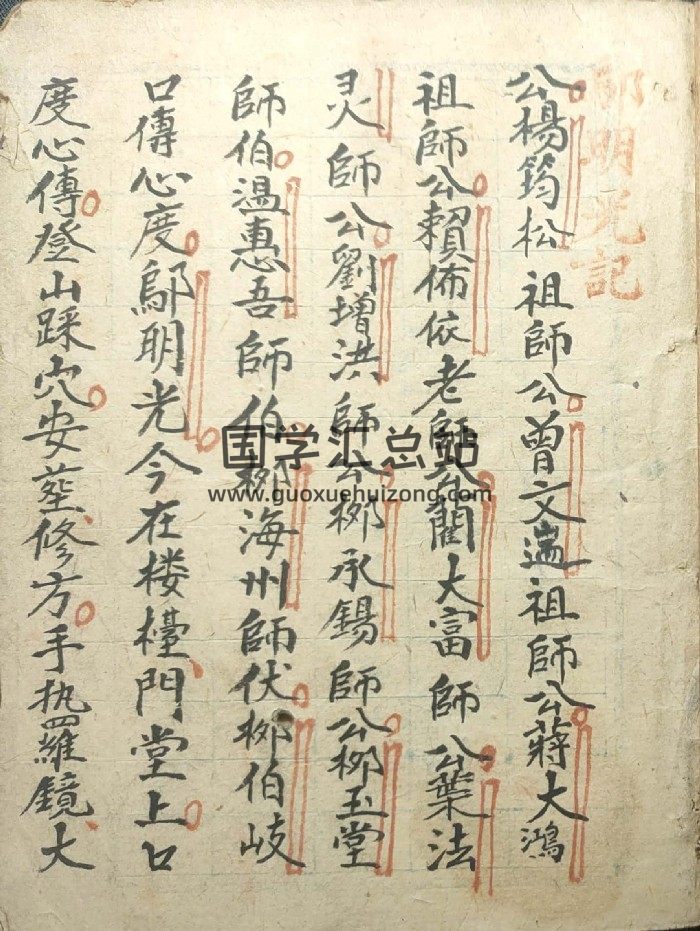 鄔明光記
公楊筠松祖師公曾文遄祖師公蔣大鴻
祖師公賴佈依老師公藺大富師公葉法
灵師公劉增洪師公柳承錫師公柳玉堂
師伯溫惠吾師伯柳海州師伏柳伯岐
口傳心度鄔明光今在楼檯門堂上口
度心傳登山踩穴安葬修方手执羅鏡大
国学汇总站
www.guoxuehuizong.com